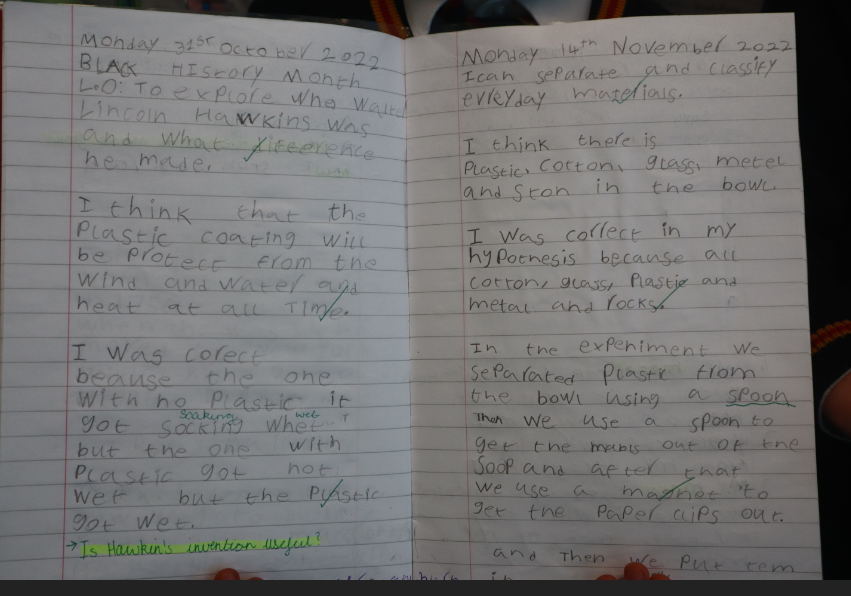 Monday 31st October 2022
BLACK HIstory Month
L.O: To explore who Walter
Lincoln Hawkins was
and what difference
he made.
I think that the
Plastic coating will
be protect from the
wind and water and
heat at all Time.
I was corect
beause the one
with no Plastic it
soaking wet
got socking whet
but the one with
Plastic got not
wet but the Plastic
got wet.
→ Is Hawkin's invention useful?
Monday 14th November 2022
I can separate and classify
evreyday materials.
I think there is
Plastic, Cotton, glass, metel
and Ston in the bowl.
I was correct in my
hypothesis because all
cotton, glass, Plastic and
metal and rocks.
In the experiment we
separated Plastic from
the bowl using a spoon
Then we use a spoon to
get the marbls out of the
Soop and after that
we use a magnet to
get the Paper clips out.
and Then We Put tem
in